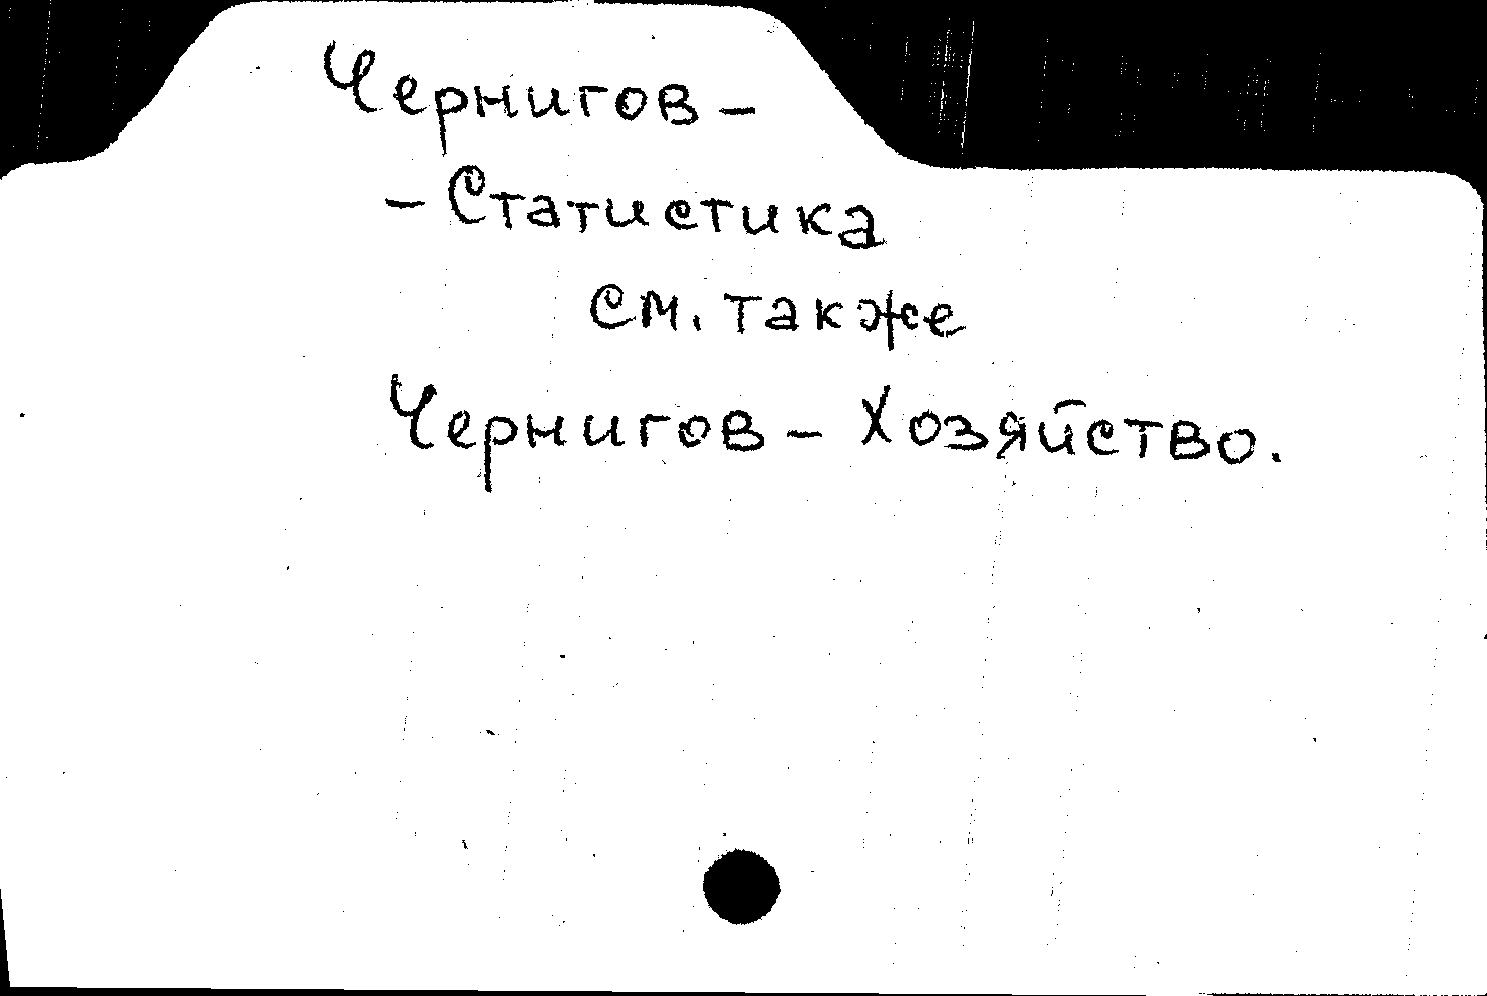 Чернигов –
– Статистика
см. также
Чернигов – Хозяйство.